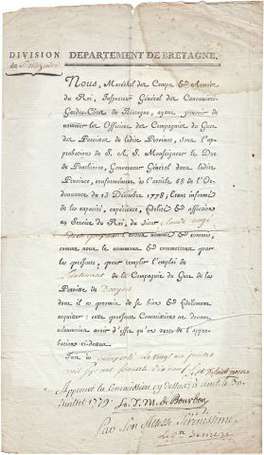 DIVISION DEPARTEMENT DE BRETAGNE.
de St
Nous, Maréchal des Camps & Armées
du Roi, Inspecteur Général des Canonniers
Gardes-Côtes de Bretagne, ayant pouvoir de
nommer les Officiers des Compagnies du Guet
des Paroisses de ladite Province, sous l'ap-
probation de S. A. S. Monseigneur le Duc
de Penthievre, Gouverneur Général dans ladite
Province, conformément à l'article 68 de l'Or-
donnance du 13 Décembre 1778; Étant informé
de la capacité, expérience, fidélité & affection
au Service du Roi, du Sieur
commis,
comme nous le nommons & commettons par
les présentes, pour remplir l'emploi de
Lieutenant de la Compagnie du Guet de la
Paroisse de
dont il se promis de se bien & fidèlement
acquitter: cette présente Commission ne devant
néanmoins avoir d'effet qu'en date de l'appro-
bation ci-dessus.
Fait à
mil sept soixante dix neuf
Approuvé la Commission cy dessus à le 30
juillet 1779. L. J. M. de Bourbon
Par Son Altesse Sérénissime